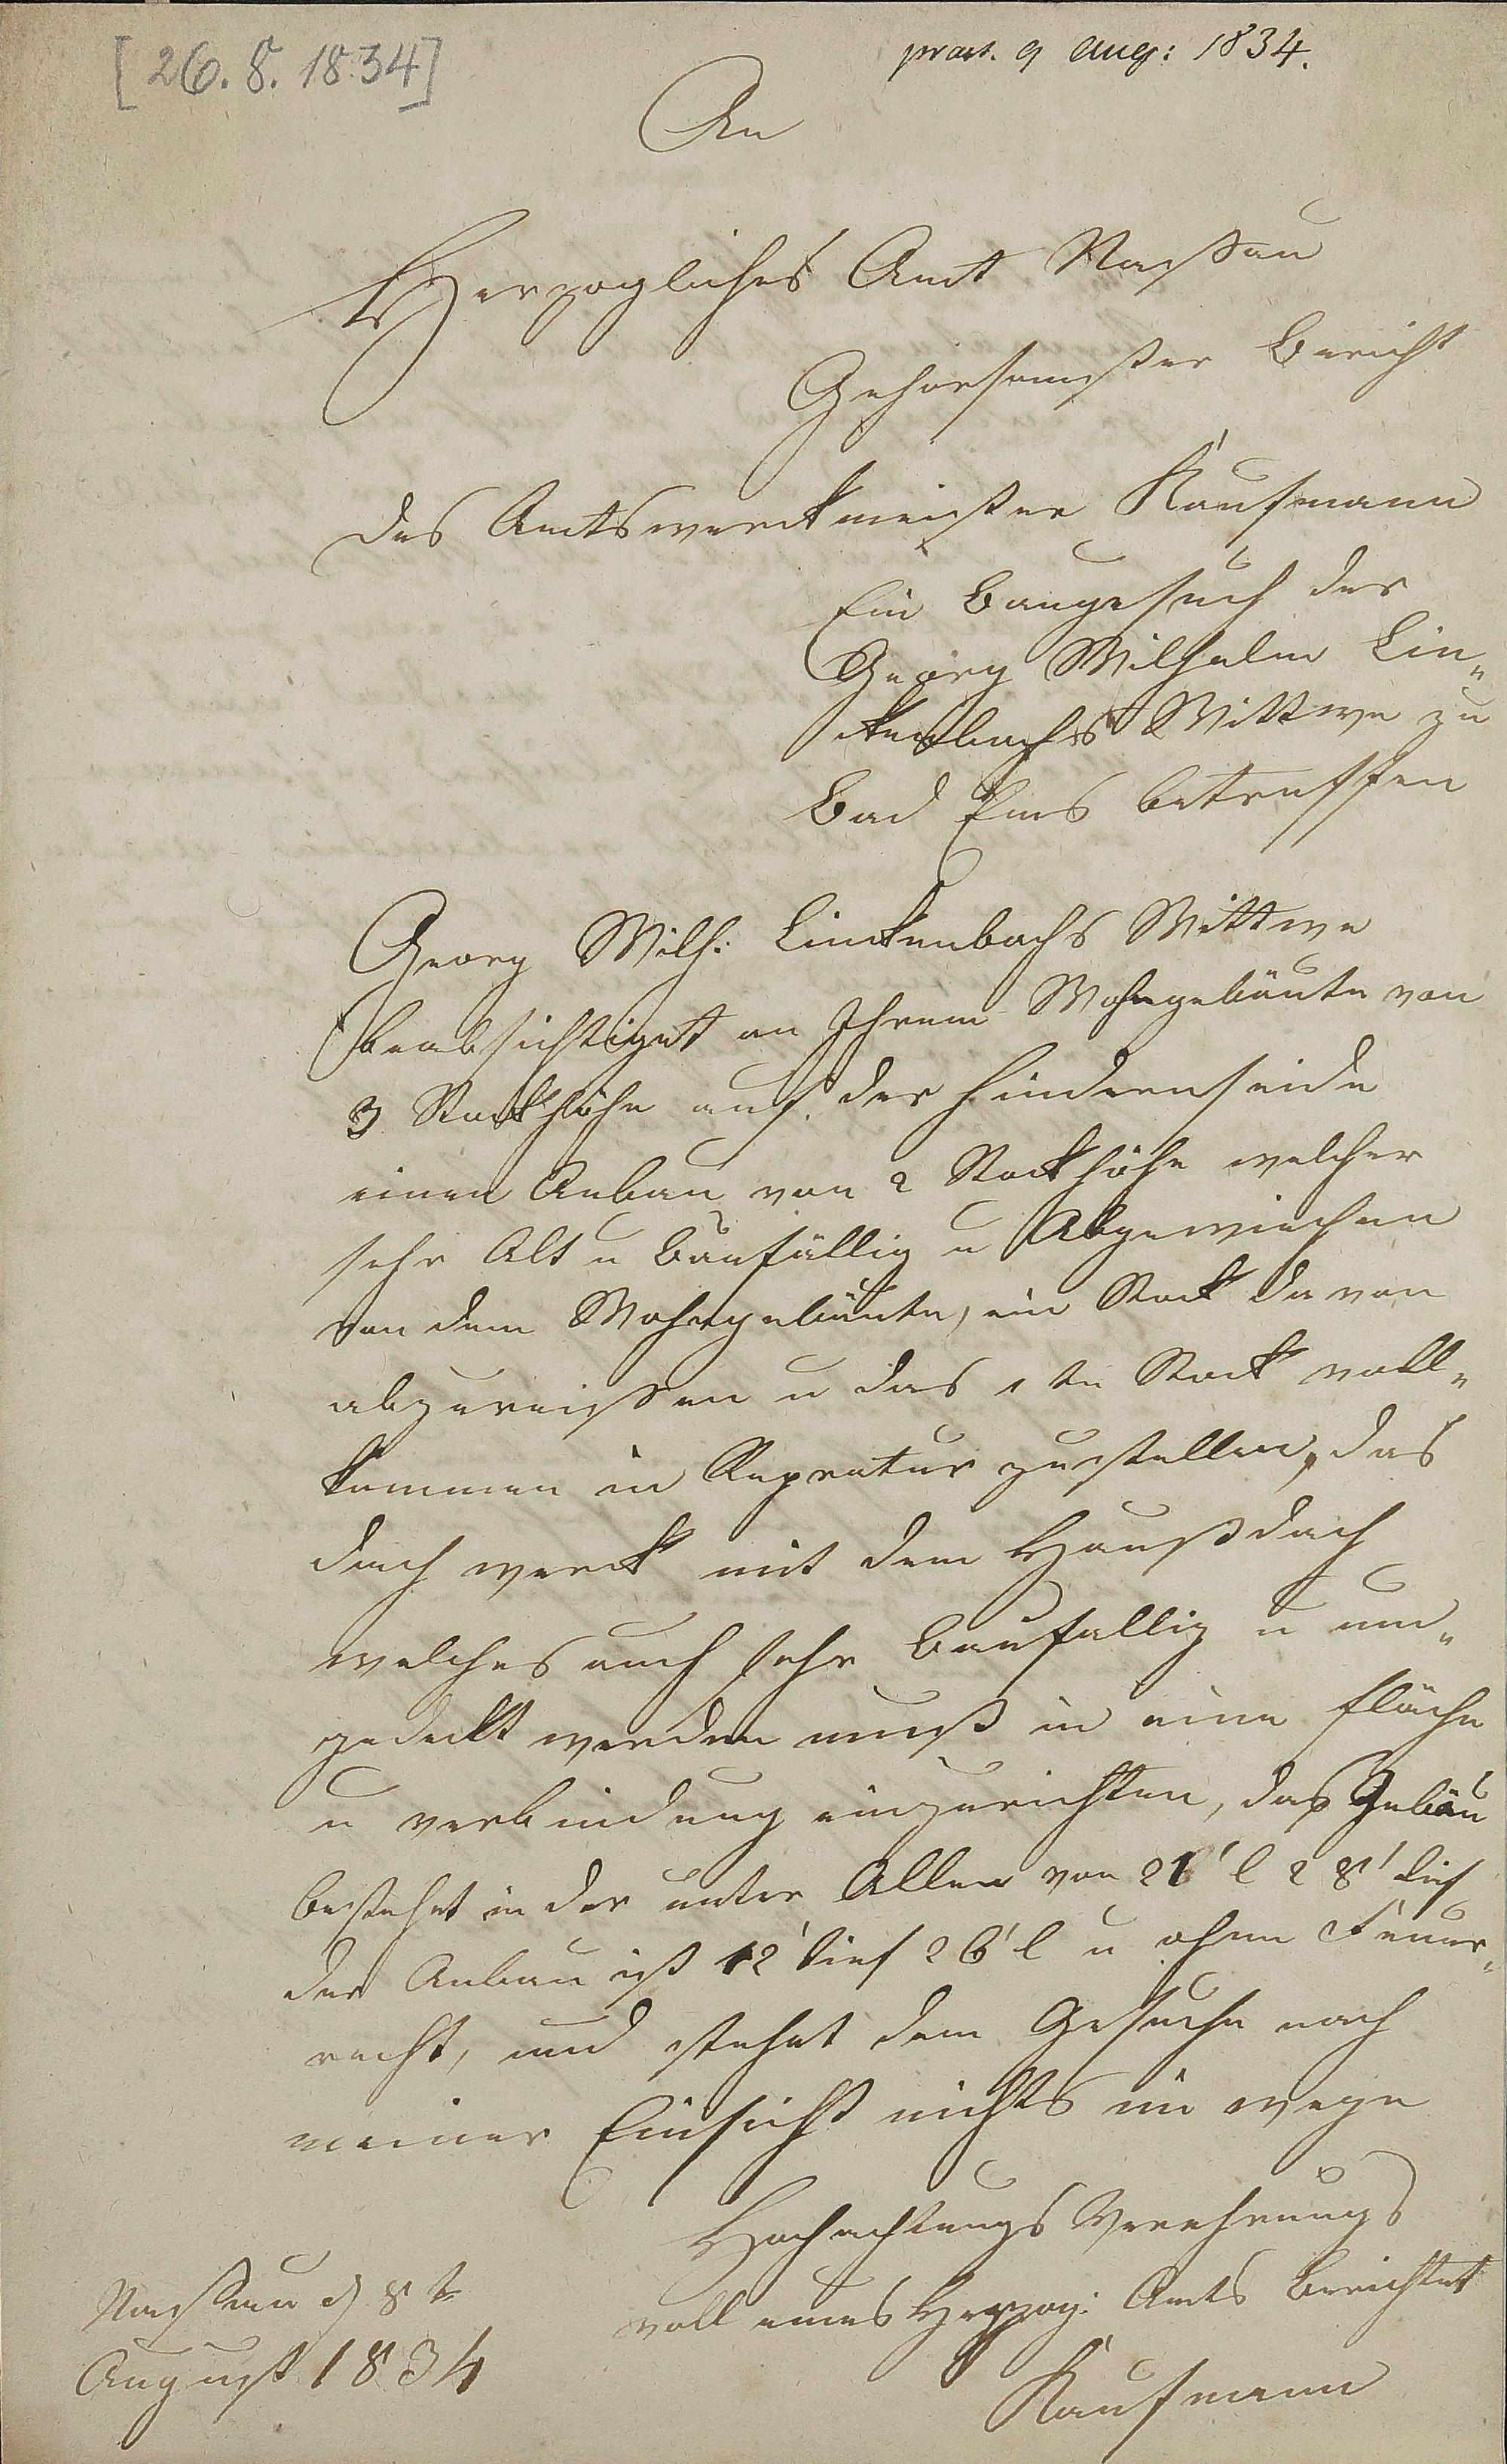 [26.8.1834]
praes. 9 Aug: 1834.
An
Herzogliches Amt Naßau
Gehorsamster Bericht
des Amtswerckmeister Kaufmann
Ein Baugesuch der
Georg Wilhelm Lin„
ckenbachs Wittwe zu
Bad Ems betreffen
Georg Wilh: Linckenbachs Wittwe
beabsichtiget an Ihrem Wohngebäute von
3 Stockhöhe auf der hinderen seide
einen Anbau von 2 Stockhöhe welcher
sehr Alt u Baufällig u Abgewichen
von dem Wohngebäute, ein Stock davon
abzureissen u das 1te Stock voll„
kommen in Repratur zustellen, das
dach werck mit dem Haußdach
welches auch sehr Baufallig u um„
gedeckt werden muß in eine fläche
u verbindung einzurichten, das Gebäu
bestehet in der unter Allee von 21' l 28' tief
der Anbau ist 12' tief 26' l u ohne Feuer„
recht, und stehet dem Gesuche nach
meiner Einsicht nichts im wege
Hochachtungs Verehrungs
voll eines Herzog: Amts Berichtet
Nassau d 8t
August 1834
Kaufmann